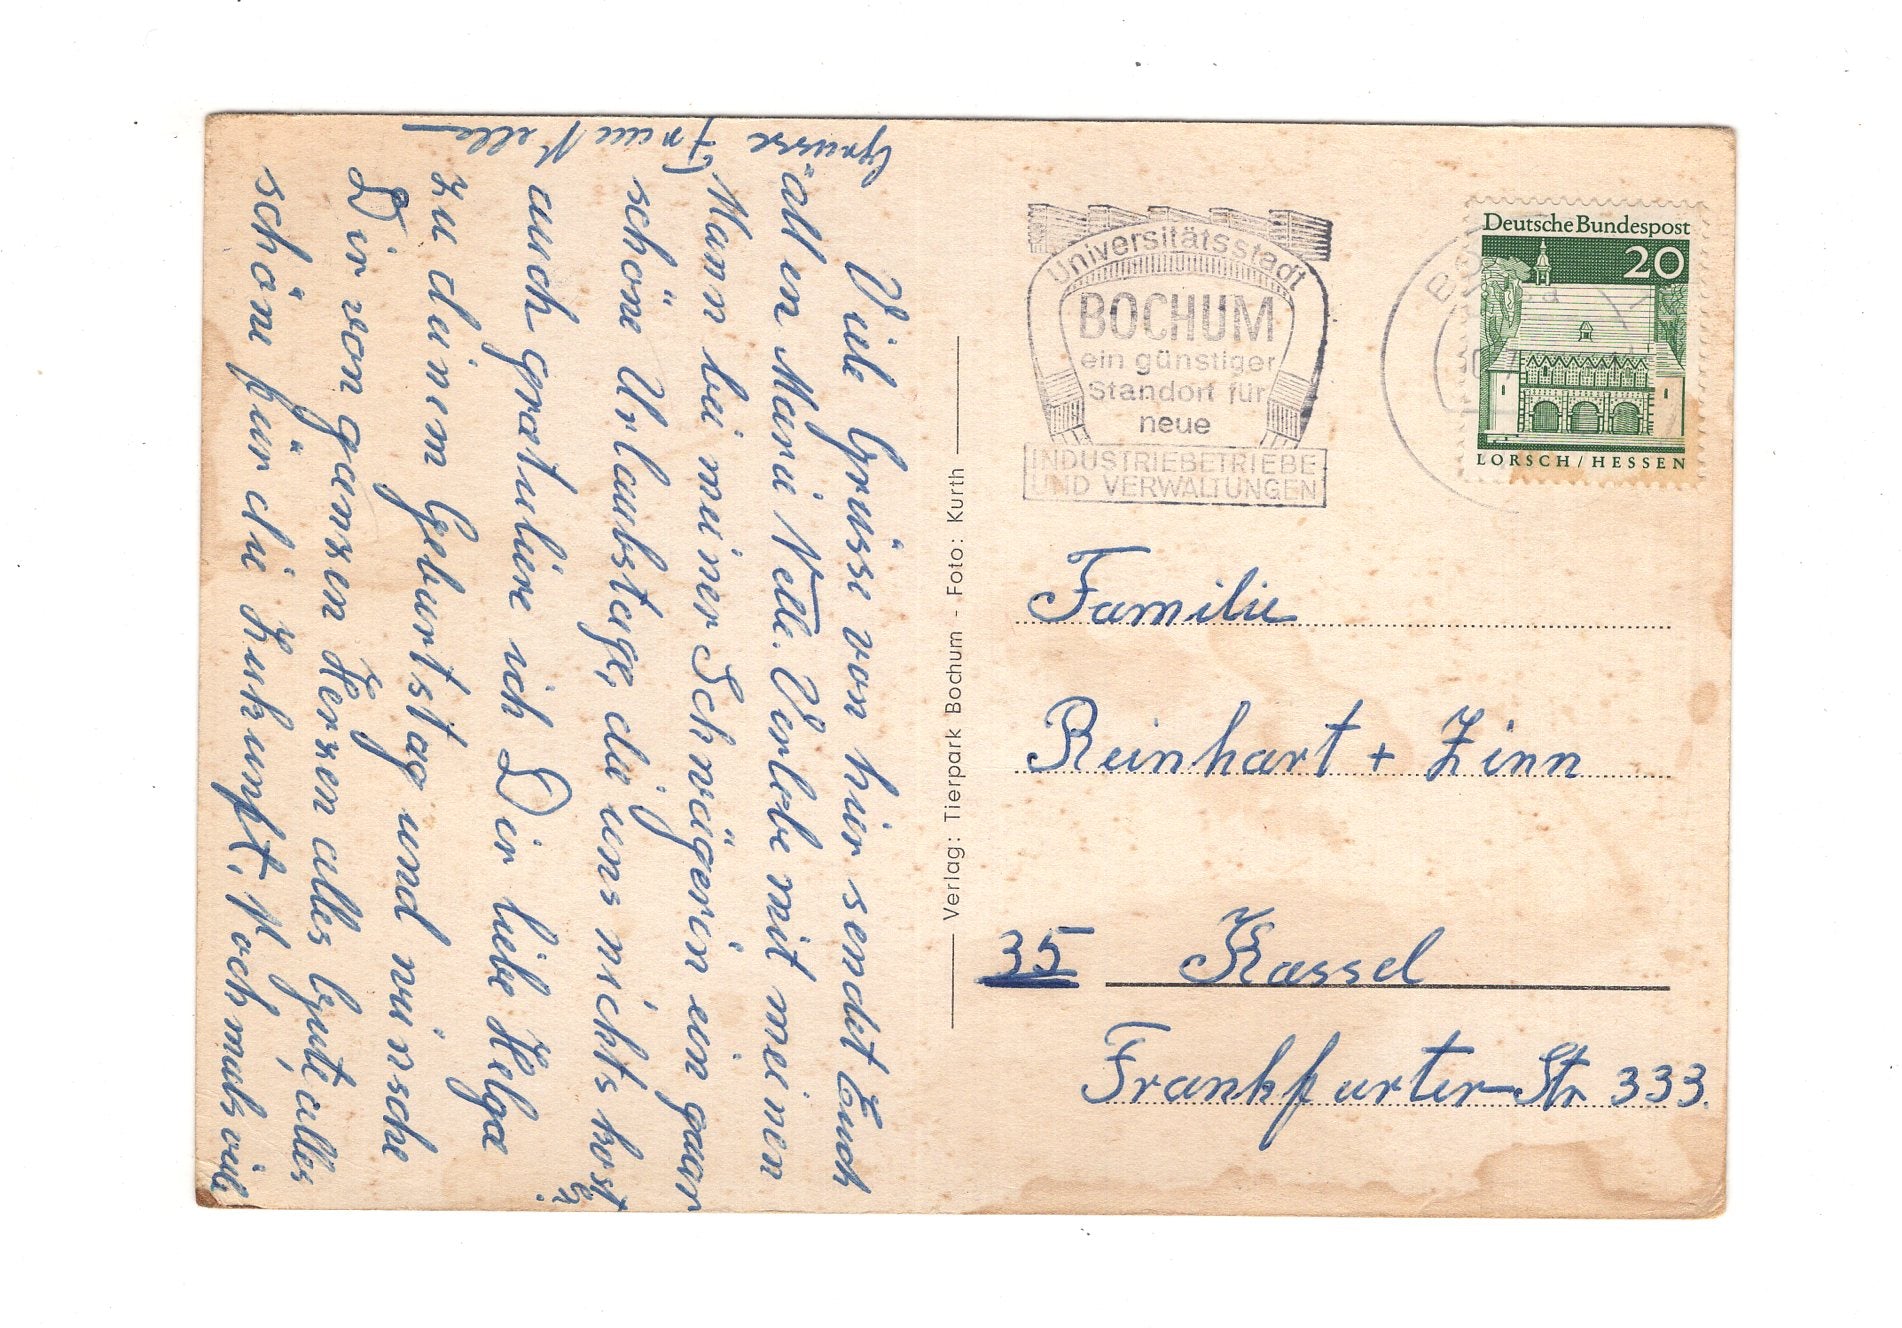 Viele Grüsse von hier sendet Euch
allen Marie Nelle. Verlebe mit meinen
Mann bei meiner Schwägerin ein paar
schöne Urlaubstage, die uns nichts kosten.
auch gratuliere ich Dir liebe Helga
zu deinem Geburtstag und wünsche
Dir von ganzen Herzen alles Gute, alles
schöne für die Zukunft. Noch mals viele
Grüsse Frau Nelle
Verlag: Tierpark Bochum - Foto: Kurth
Universitätsstadt
BOCHUM
ein günstiger
Standort für
neue
INDUSTRIEBETRIEBE
UND VERWALTUNGEN
Deutsche Bundespost
20
LORSCH/HESSEN
Familie
Reinhart + Zinn
35 Kassel
Frankfurter-Str 333.